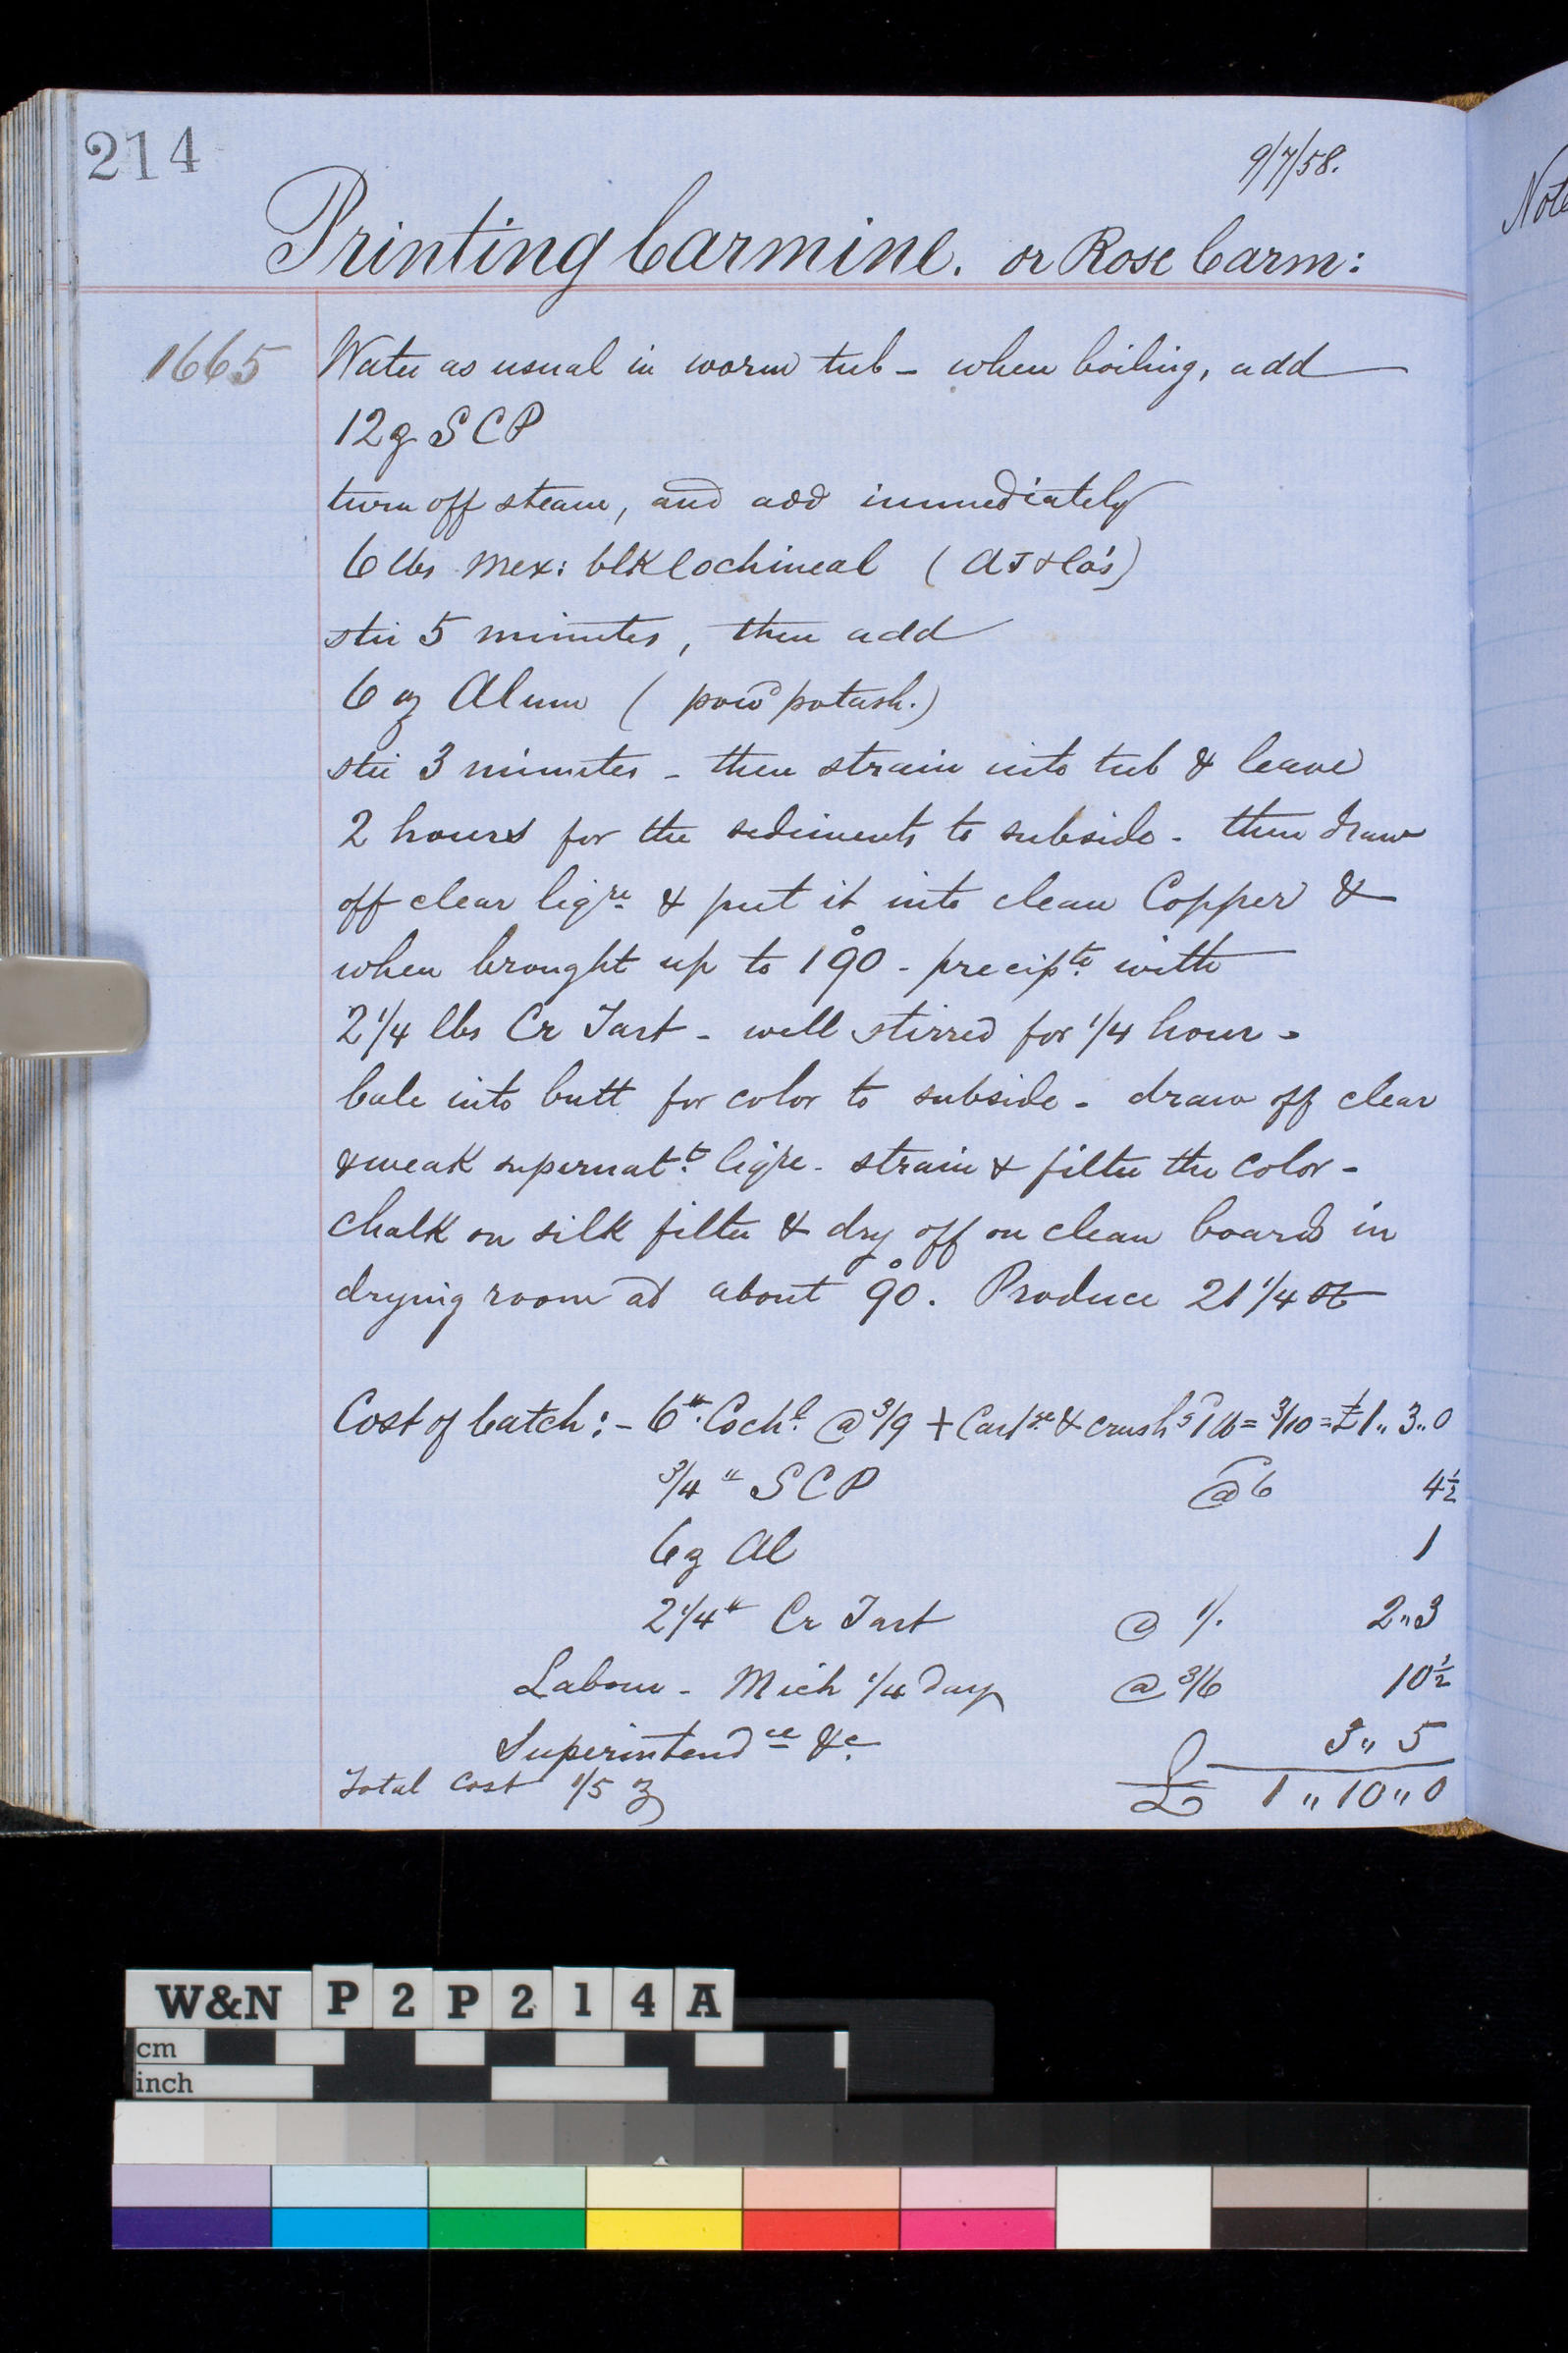 214
9/7/58.
Printing Carmine. or Rose Carm:
Note
1665
Water as usual in worm tub - when boiling, add
12 oz SCP
turn off steam, and add immediately
6 lbs Mex: blk Cochineal (AJ & Co's)
stir 5 minutes, then add
6 oz Alum (powd potash.)
stir 3 minutes - then strain into tub & leave
2 hours for the sediments to subside - then draw
off clear liqre & put it into clean Copper &
when brought up to 190° - precipte with
2 1/4 lbs Cr Tart - well stirred for 1/4 hour -
bale into butt for color to subside - draw off clear
& weak supernatt. liqre - strain & filter the color -
chalk on silk filter & dry off on clean boards in
drying room at about 90°. Produce 21 1/4 oz
Cost of batch :- 6 lb. Cochl. @ 3/9 + Cartge & crushg 1 lb = 3/10 = £1 " 3 " 0
3/4 lb SCP @ 6 4½
6 oz Al 1
2 1/4 lb Cr Tart @ 1/. 2 " 3
Labour - Mich 1/4 day @ 3/6 10½
Superintendce &c. 3 " 5
Total Cost 1/5 oz £ 1 " 10 " 0
W&N P2P214A
cm
inch